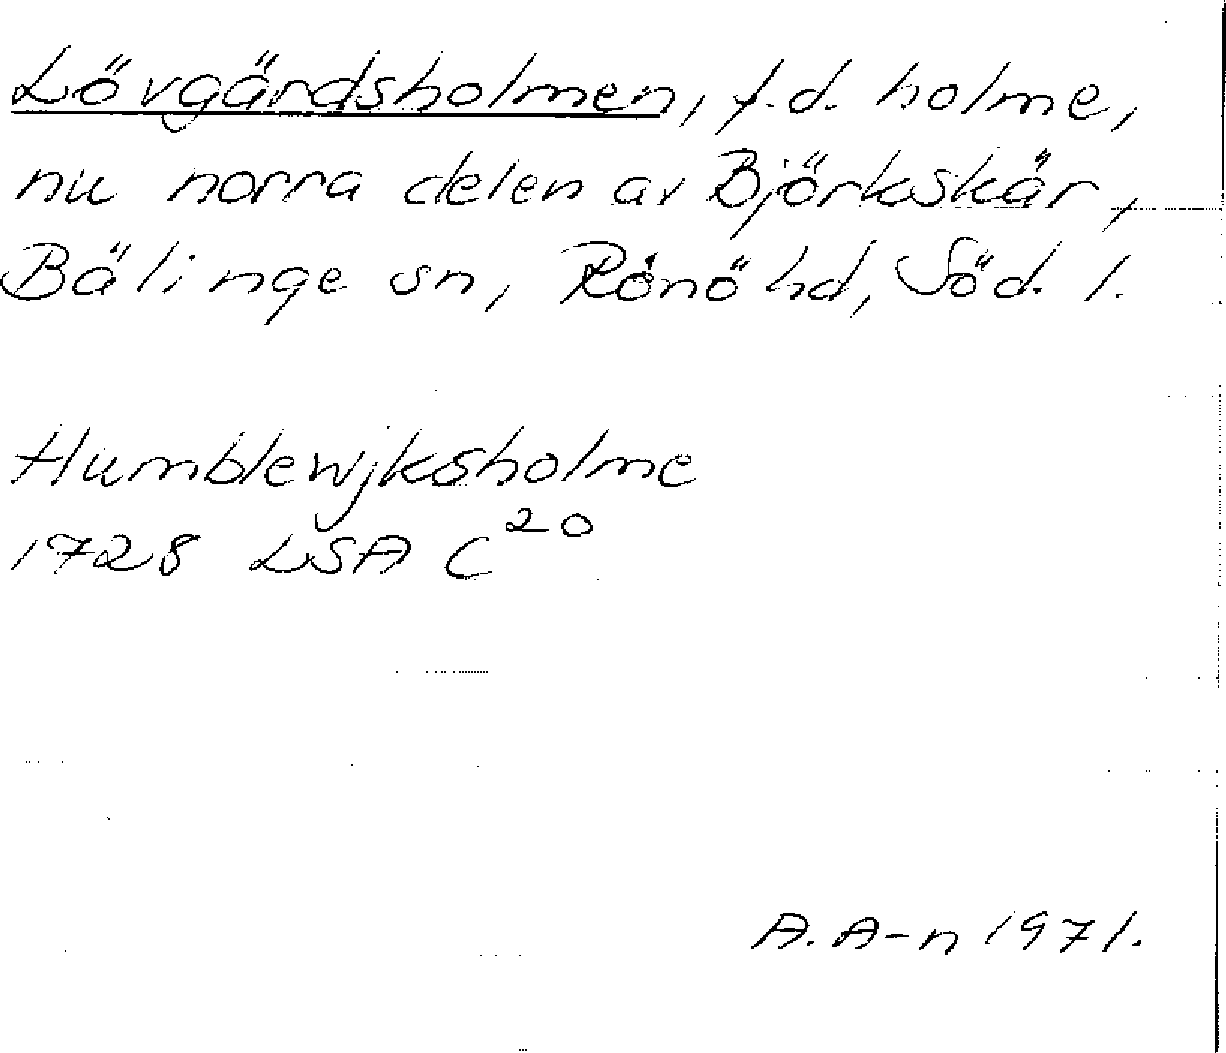 Lövgärdsholmen, f.d. holme,
nu norra delen av Björkskär,
Bälinge sn, Rönö hd, Söd. l.
Humblewjksholme
1728 LSA C²⁰
A. A-n 1971.